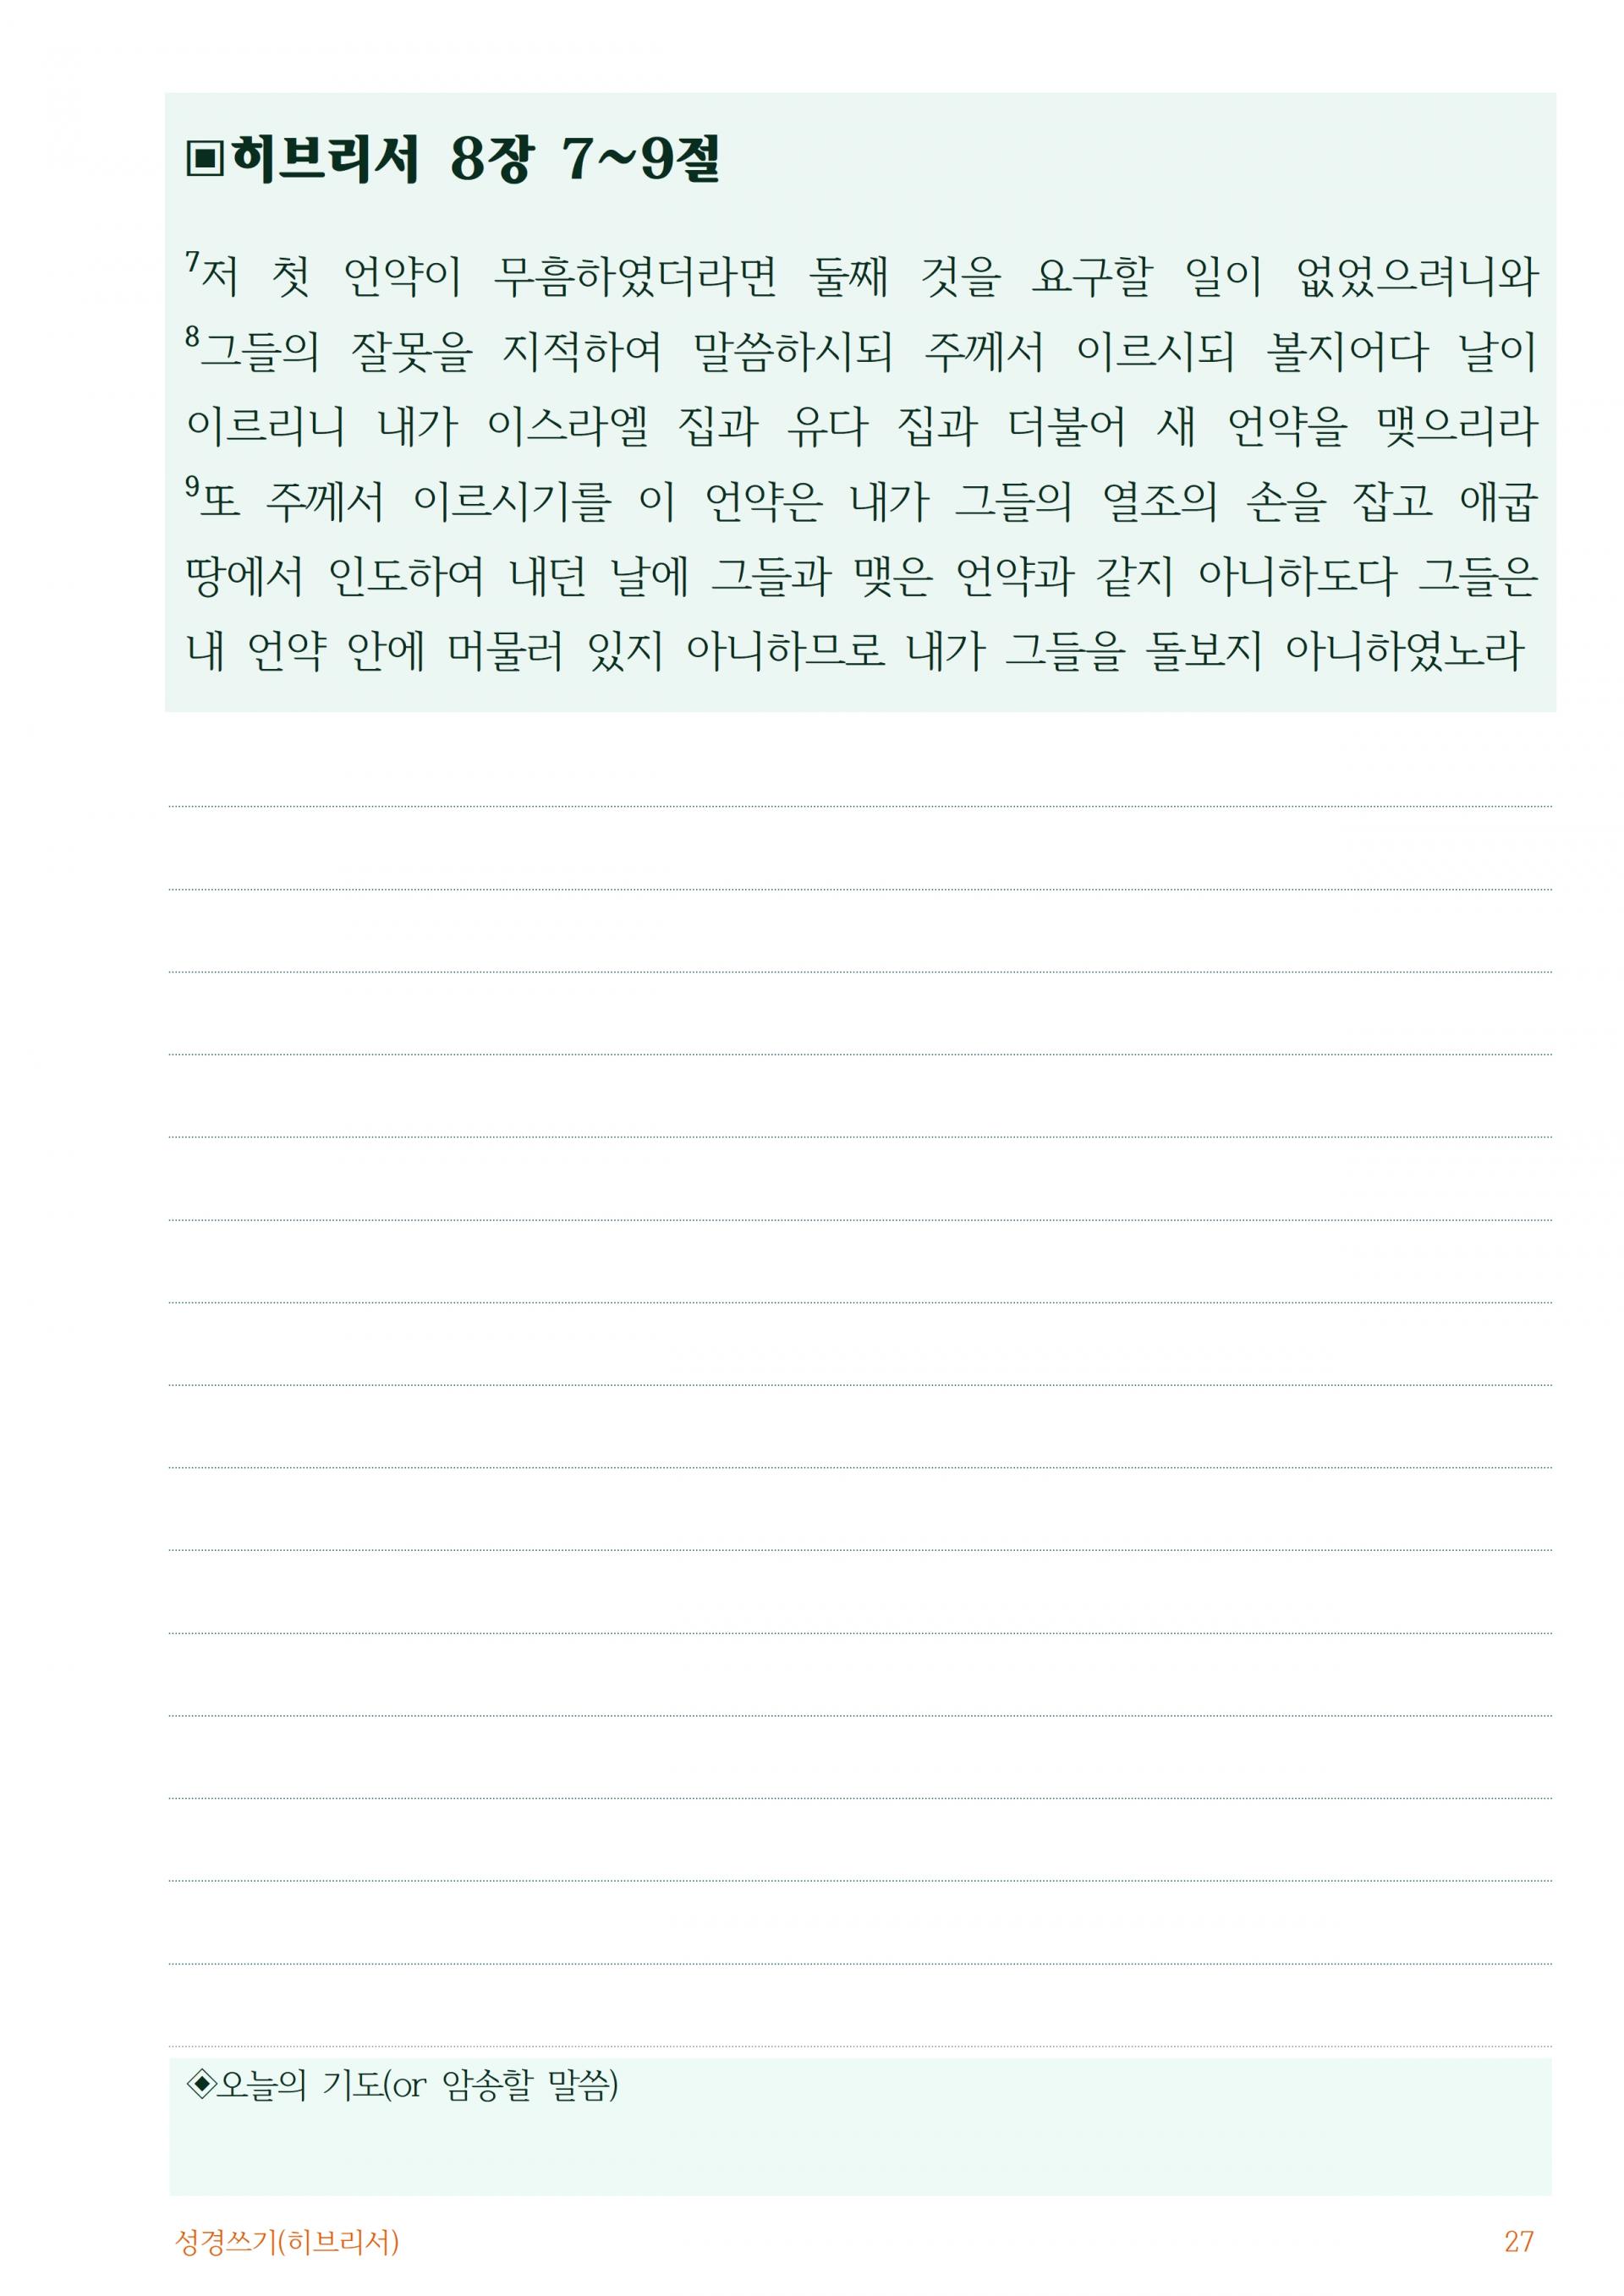 ▣히브리서 8장 7~9절
7저 첫 언약이 무흠하였더라면 둘째 것을 요구할 일이 없었으려니와
8그들의 잘못을 지적하여 말씀하시되 주께서 이르시되 볼지어다 날이
이르리니 내가 이스라엘 집과 유다 집과 더불어 새 언약을 맺으리라
9또 주께서 이르시기를 이 언약은 내가 그들의 열조의 손을 잡고 애굽
땅에서 인도하여 내던 날에 그들과 맺은 언약과 같지 아니하도다 그들은
내 언약 안에 머물러 있지 아니하므로 내가 그들을 돌보지 아니하였노라
◈오늘의 기도(or 암송할 말씀)
성경쓰기(히브리서) 27